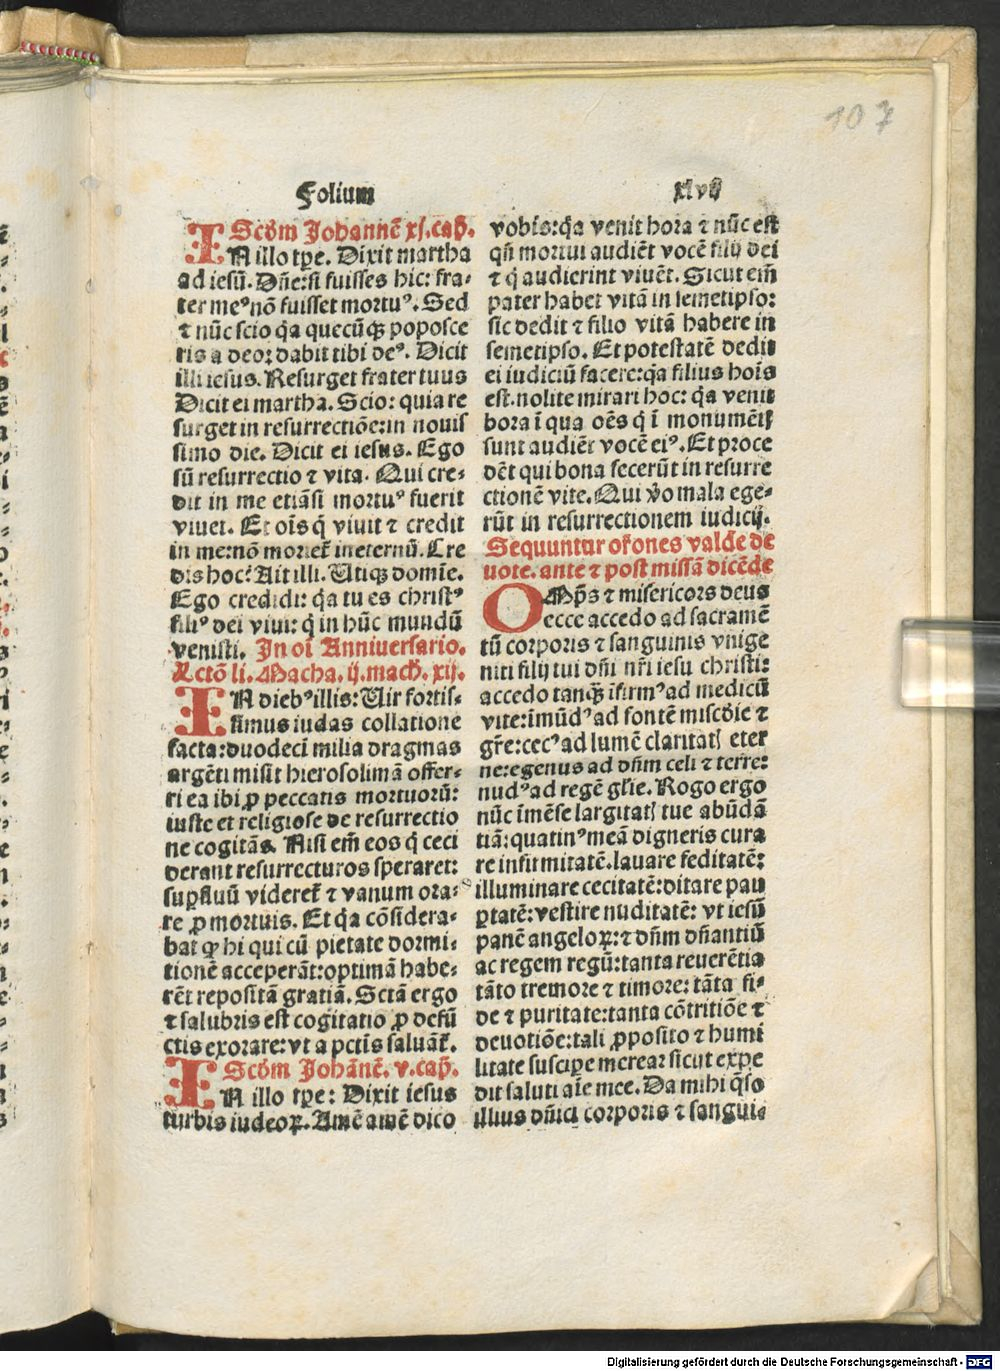 107
Folium xlvij
Scd̄m Johannē xj. cap̄.
IN illo tp̄e. Dixit martha
ad iesū. Dn̄e:si fuisses hic: fra-
ter meꝰ nō fuisset mortuꝰ. Sed
⁊ nūc scio q̄a quecūqꝫ poposce
ris a deo: dabit tibi deꝰ. Dicit
illi iesus. Resurget frater tuus
Dicit ei martha. Scio: quia re
surget in resurrectiōe:in nouis
simo die. Dicit ei iesus. Ego
sū resurrectio ⁊ vita. Qui cre-
dit in me etiāsi mortuꝰ fuerit
viuet. Et oīs q̄ viuit ⁊ credit
in me:nō morieť in eternū. Cre
dis hoc? Ait illi. Utiqꝫ domīe.
Ego credidi: q̄a tu es christꝰ
filiꝰ dei viui: q̄ in hūc mundū
venisti. In oī Anniuersario.
Lctō li. Macha. ij. mach. xij.
IN diebꝰ illis: Uir fortis-
simus iudas collatione
facta:duodeci milia dragmas
argēti misit hierosolimā offer-
ri ea ibi ꝓ peccatis mortuorū:
iuste et religiose de resurrectio
ne cogitās. Nisi em̄ eos q̄ ceci
derant resurrecturos speraret:
suꝑfluū videreť ⁊ vanum ora-
re ꝓ mortuis. Et q̄a cōsidera-
bat ꝙ hi qui cū pietate dormi-
tionē acceperāt:optimā habe-
rēt repositā gratiā. Sctā ergo
⁊ salubris est cogitatio ꝓ defū
ctis exorare:vt a pctīs saluāť.
Scd̄m Johānē. v. cap̄.
IN illo tp̄e: Dixit iesus
turbis iudeoꝝ. Amē amē dico
vobis:q̄a venit hora ⁊ nūc est
qn̄ mortui audiēt vocē filij dei
⁊ q̄ audierint viuēt. Sicut em̄
pater habet vitā in semetipso:
sic dedit ⁊ filio vitā habere in
semetipso. Et potestatē dedit
ei iudiciū facere:q̄a filius hoīs
est. nolite mirari hoc: q̄a venit
hora ī qua oēs q̄ ī monumētꝭ
sunt audiēt vocē eiꝰ. Et proce
dēt qui bona fecerūt in resurre
ctionē vite. Qui v̄o mala ege-
rūt in resurrectionem iudicij.
Sequuntur or̄ones valde de
uote. ante ⁊ post missā dicēde
OMp̄s ⁊ misericors deus
ecce accedo ad sacramē
tū corporis ⁊ sanguinis vnige
niti filij tui dn̄i nr̄i iesu christi:
accedo tanqꝫ īfirmꝰ ad medicū
vite:imūdꝰ ad fontē mīscd̄ie ⁊
gr̄e:cecꝰ ad lumē claritatꝭ eter
ne:egenus ad dn̄m celi ⁊ terre:
nudꝰ ad regē gl̄ie. Rogo ergo
nūc īmēse largitatꝭ tue abūdā
tiā:quatinꝰ meā digneris cura
re infirmitatē. lauare feditatē:
illuminare cecitatē:ditare pau
ꝑtatē:vestire nuditatē: vt iesū
panē angeloꝝ:⁊ dn̄m dn̄antiū
ac regem regū:tanta reuerētia
tāto tremore ⁊ timore: tāta fi-
de ⁊ puritate:tanta cōtritiōe ⁊
deuotiōe:tali ꝓposito ⁊ humi
litate suscipe merear sicut expe
dit saluti aīe mee. Da mihi q̄so
illius dn̄ici corporis ⁊ sangui-
Digitalisierung gefördert durch die Deutsche Forschungsgemeinschaft - DFG